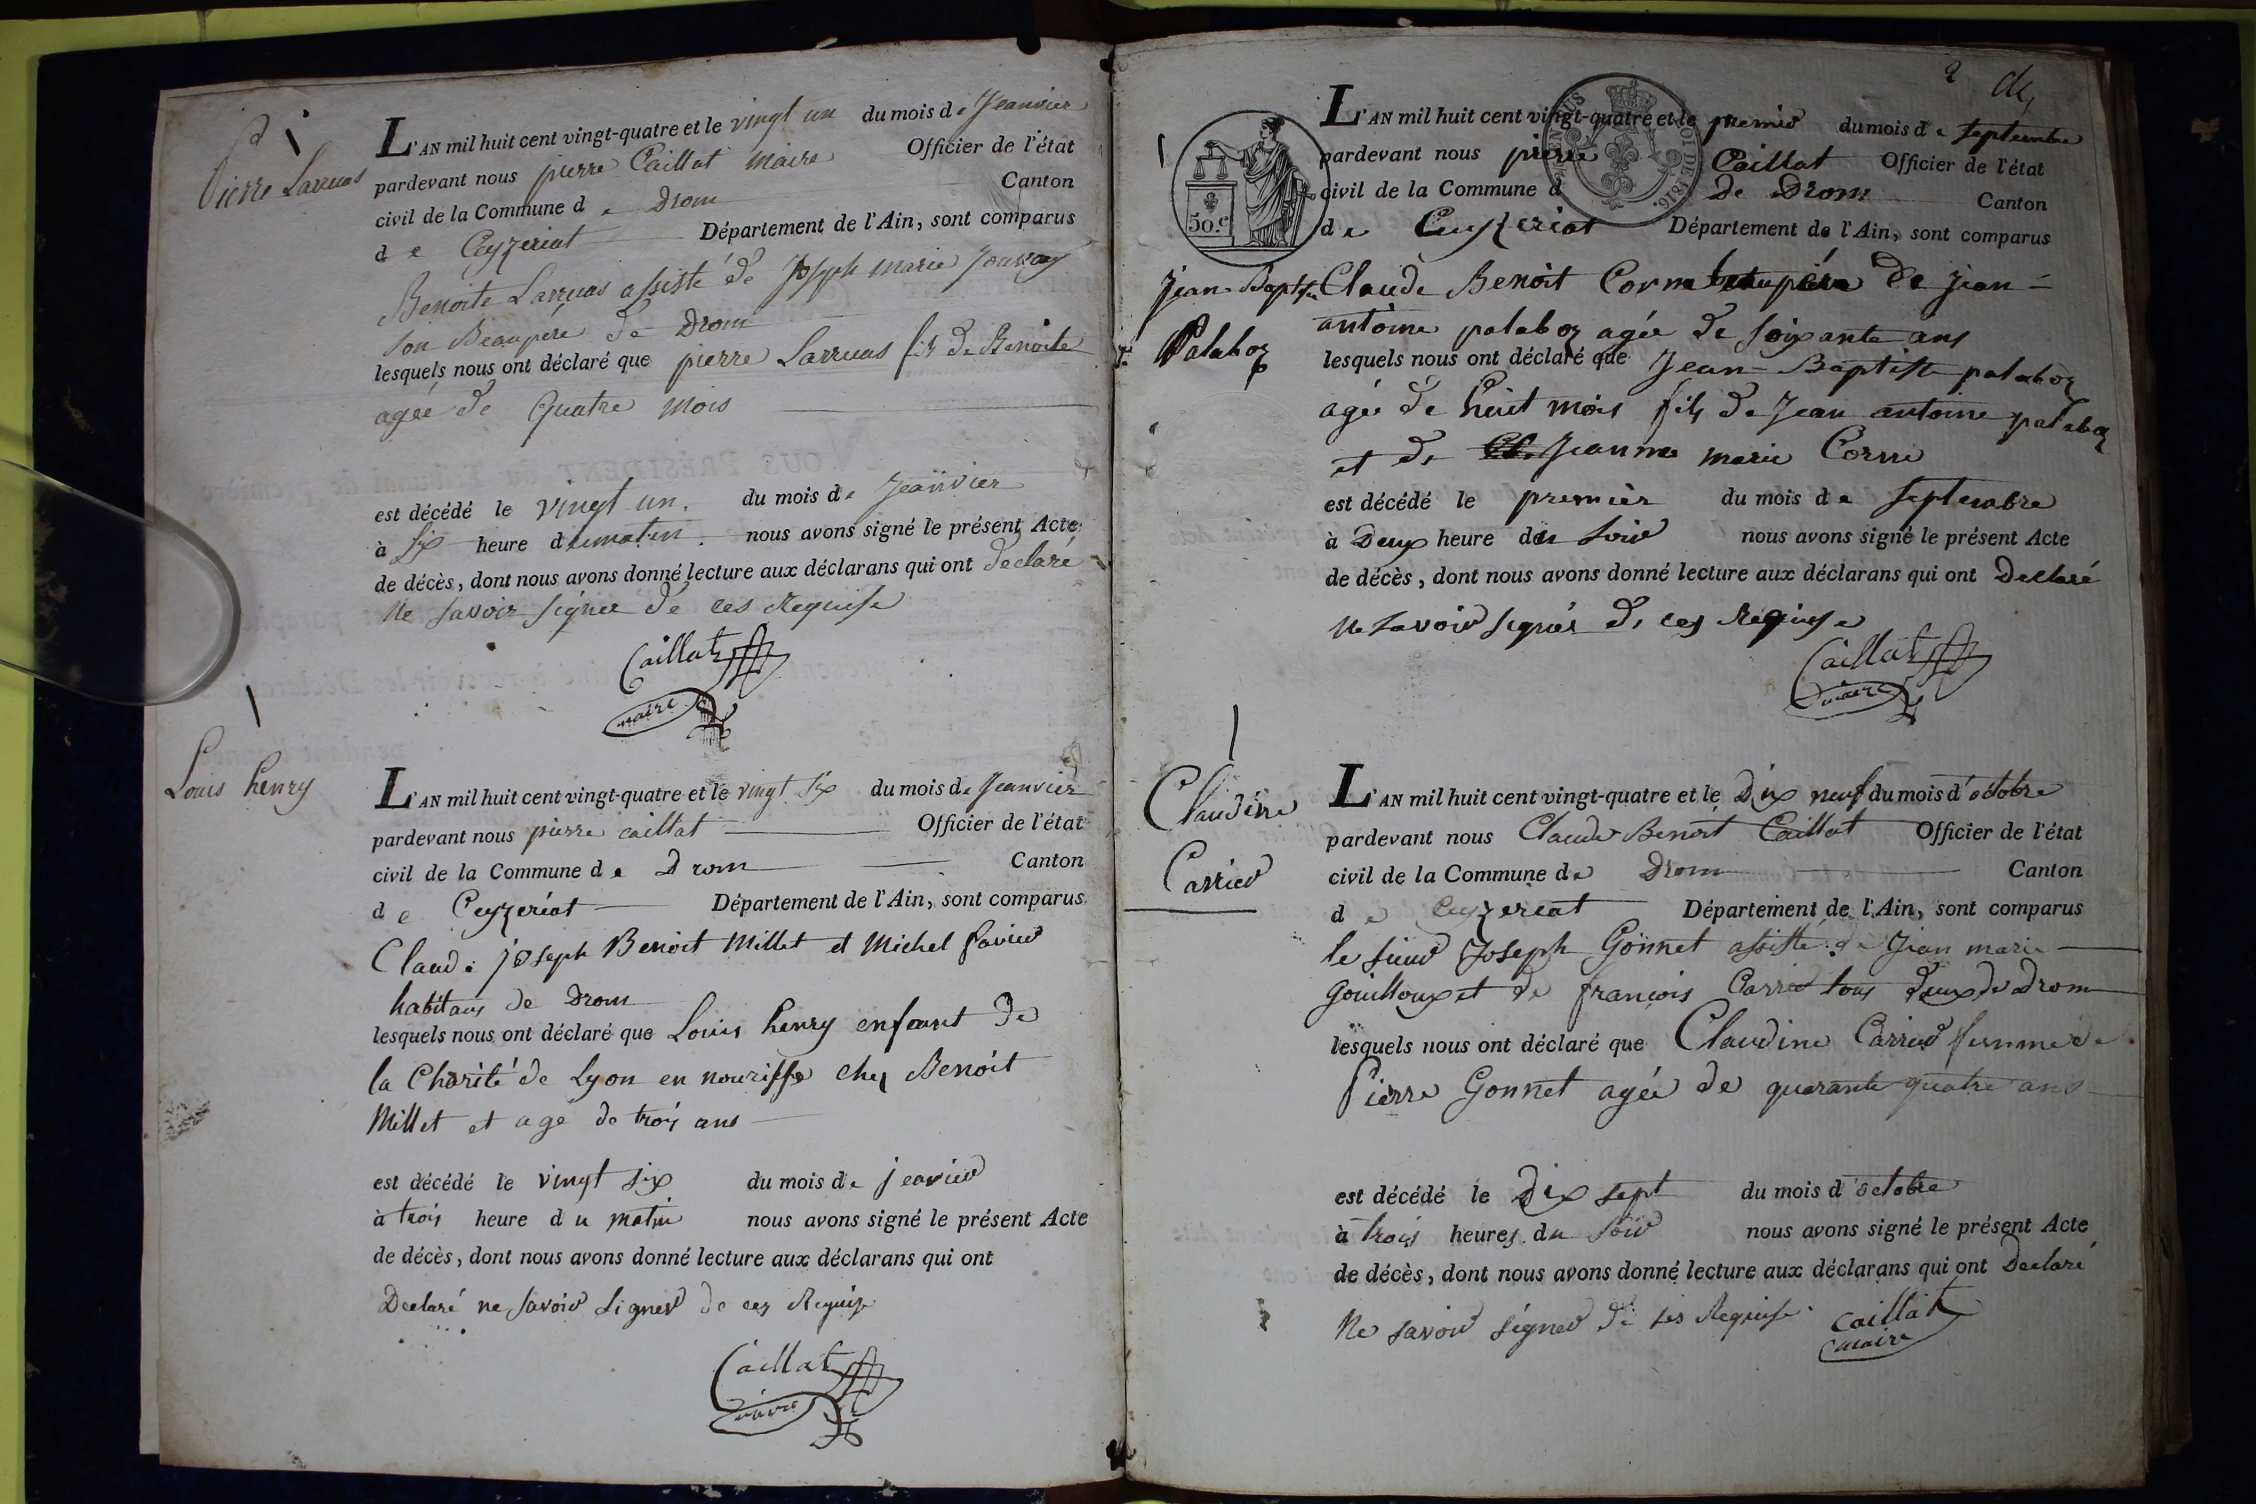 Pierre Larruas
L'AN mil huit cent vingt-quatre et le vingt un du mois de Jeanvier
pardevant nous pierre Caillat maire Officier de l'état
civil de la Commune de Drom Canton
de Ceyzeriat Département de l'Ain, sont comparus
Benoite Larruas assisté de Joseph marie
son Beaupére de Drom
lesquels nous ont déclaré que pierre Larruas fils de Benoite
agée de Quatre mois
est décédé le vingt un. du mois de Jeanvier
à six heure du matin. nous avons signé le présent Acte
de décès, dont nous avons donné lecture aux déclarans qui ont declaré
Ne savoir signer dé ces Requise
Caillat
maire
Louis henry
L'AN mil huit cent vingt-quatre et le vingt six du mois de Jeanvier
pardevant nous pierre caillat Officier de l'état
civil de la Commune de Drom Canton
de Ceyzeriat Département de l'Ain, sont comparus
Claude joseph Benoit Millet et Michel favier
habitans de Drom
lesquels nous ont déclaré que Louis henry enfant de
la Charité de Lyon en nourisse chez Benoit
Millet et age de trois ans
est décédé le vingt six du mois de jeavier
à trois heure du matin nous avons signé le présent Acte
de décès, dont nous avons donné lecture aux déclarans qui ont
Declaré ne savoir signer de ces Requise
Caillat
maire
2
50.c
ROI DE 1816.
Jean-Baptiste
Palaboz
L'AN mil huit cent vingt-quatre et le premier du mois de septembre
pardevant nous pierre Caillat Officier de l'état
civil de la Commune d de Drom Canton
de Ceyzeriat Département de l'Ain, sont comparus
Claude Benoit Corne beaupére de jean-
antoine palaboz agée de soixante ans
lesquels nous ont déclaré que Jean-Baptiste palaboz
agée dé huit mois fils de Jean antoine palaboz
et de Jeanne marie Corne
est décédé le premier du mois de septembre
à Deux heure du soir nous avons signé le présent Acte
de décès, dont nous avons donné lecture aux déclarans qui ont Declaré
Ne savoir signer de ces Requise
Caillat
maire
Claudine
Carrier
L'AN mil huit cent vingt-quatre et le Dix neuf du mois d'octobre
pardevant nous Claude Benoit Caillat Officier de l'état
civil de la Commune de Drom Canton
de Ceyzereat Département de l'Ain, sont comparus
le sieur Joseph Gonnet assisté de Jean marie
Gouilloux et de françois Carrier tous deux de Drom
lesquels nous ont déclaré que Claudine Carrier femme de
Pierre Gonnet agée de quarante quatre ans
est décédé le Dix sept du mois d'octobre
à trois heures du soir nous avons signé le présent Acte
de décès, dont nous avons donné lecture aux déclarans qui ont Declaré
Ne savoir signer de ses Requise
caillat
maire